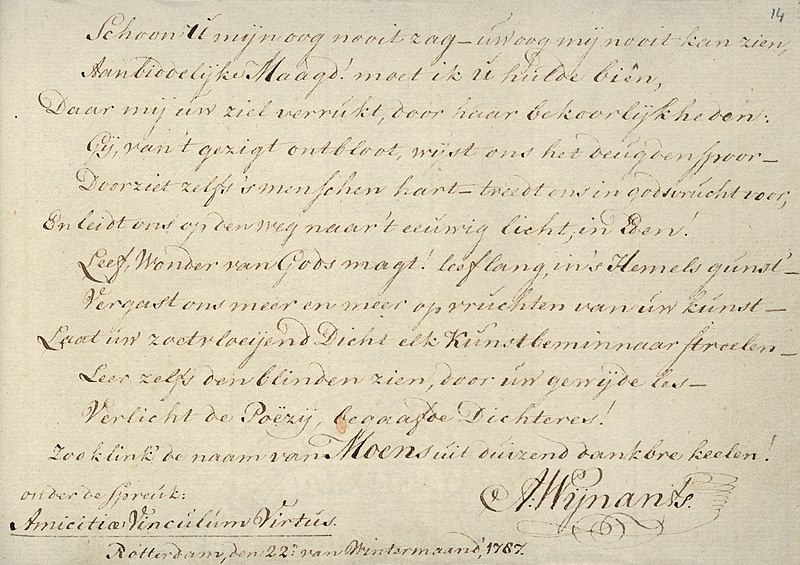 14
Schoon U mijn oog nooit zag – uw oog mij nooit kan zien,
Aanbiddelijke Maagd! moet ik U hulde biên,
Daar mij uw ziel verrukt, door haar bekoorlijkheden:
Gij, van 't gezigt ontbloot, wijst ons het deugdenspoor –
Doorziet zelfs 's menschen hart – treedt ons in godsvrucht voor,
En leidt ons op den weg naar 't eeuwig licht, in Eden!
Leef, Wonder van Gods magt! leef lang, in 's Hemels gunst –
Vergast ons meer en meer op vruchten van uw kunst –
Laat uw zoetvloeijend Dicht elk Kunstbeminnaar streelen –
Leer zelfs den blinden zien, door uw gewijde les –
Verlicht de Poëzij, begaafde Dichteres!
Zoo klink' de naam van Moens uit duizend dankbre keelen!
A. Wijnants.
onder de spreuk:
Amicitiæ Vinculum Virtus.
Rotterdam, den 22n van Wintermaand, 1787.